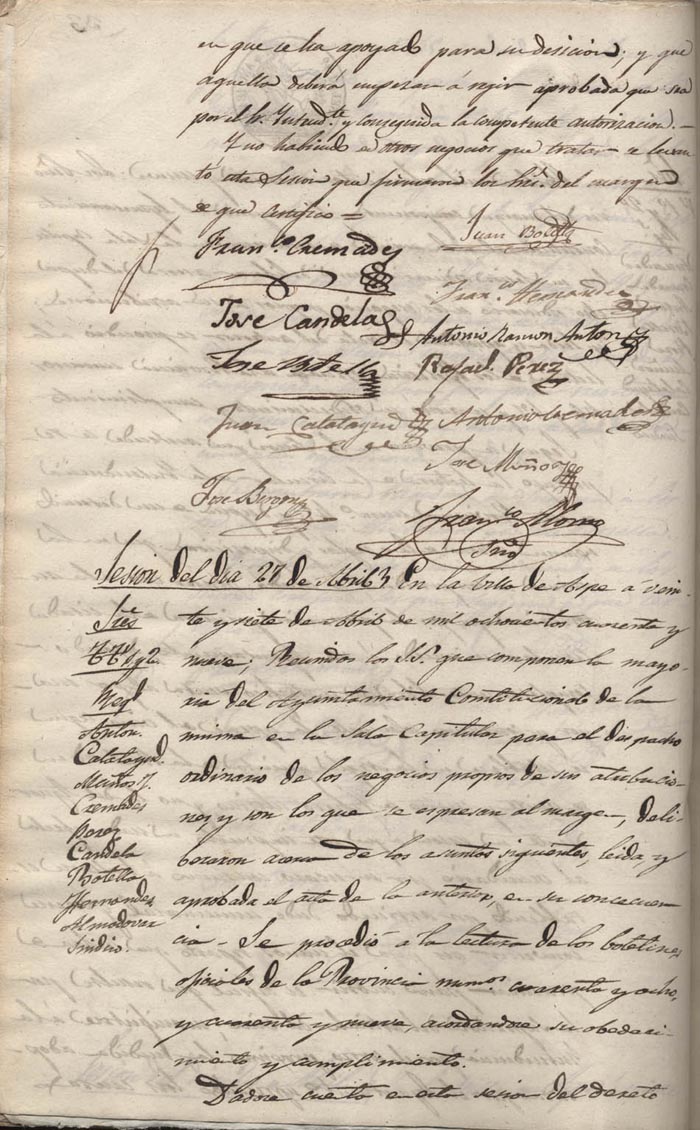 en que se ha apoyado para su desicion; y que
aquella deberá empezar á regir aprobada que sea
por el Sr. Intend.te y conseguida la competente autorizacion.-
Y no habiendo otros negocios que tratar se levan
tó esta Sesion que firmaron los Sres. del margen
de que certifico =
Juan Botella
Fran.co Cremades
Fran.co Hernandez
Jose Candela
Antonio Ramon Anton
Jose Botella
Rafael Perez
Juan Calatayud
Antonio Cremades
Jose Muñoz
Jose
Fran.co Alonso
Srio
Sesion del dia 27 de Abril
En la Villa de Aspe a vein
Sres
te y siete de Abril de mil ochocientos cuarenta y
nueve; Reunidos los SS. que componen la mayo
Reg.s
ria del Ayuntamiento Constitucional de la
Anton.
misma en la Sala Capitular para el despacho
Calatayud.
ordinario de los negocios propios de sus atribucio
Muñoz
nes, y son los que se espresan al margen, deli
Cremades
Perez
beraron acerca de los asuntos siguientes, leida y
Candela
Botella
aprobada el acta de la anterior, en su concecuen
Hernandez
Almodovar
Sindico.
cia - Se procedió a la lectura de los boletines
oficiales de la Provincia num.os cuarenta y ocho,
y cuarenta y nueve, acordandose su obedeci-
miento y cumplimiento.
Dadose cuenta en esta sesion del decreto